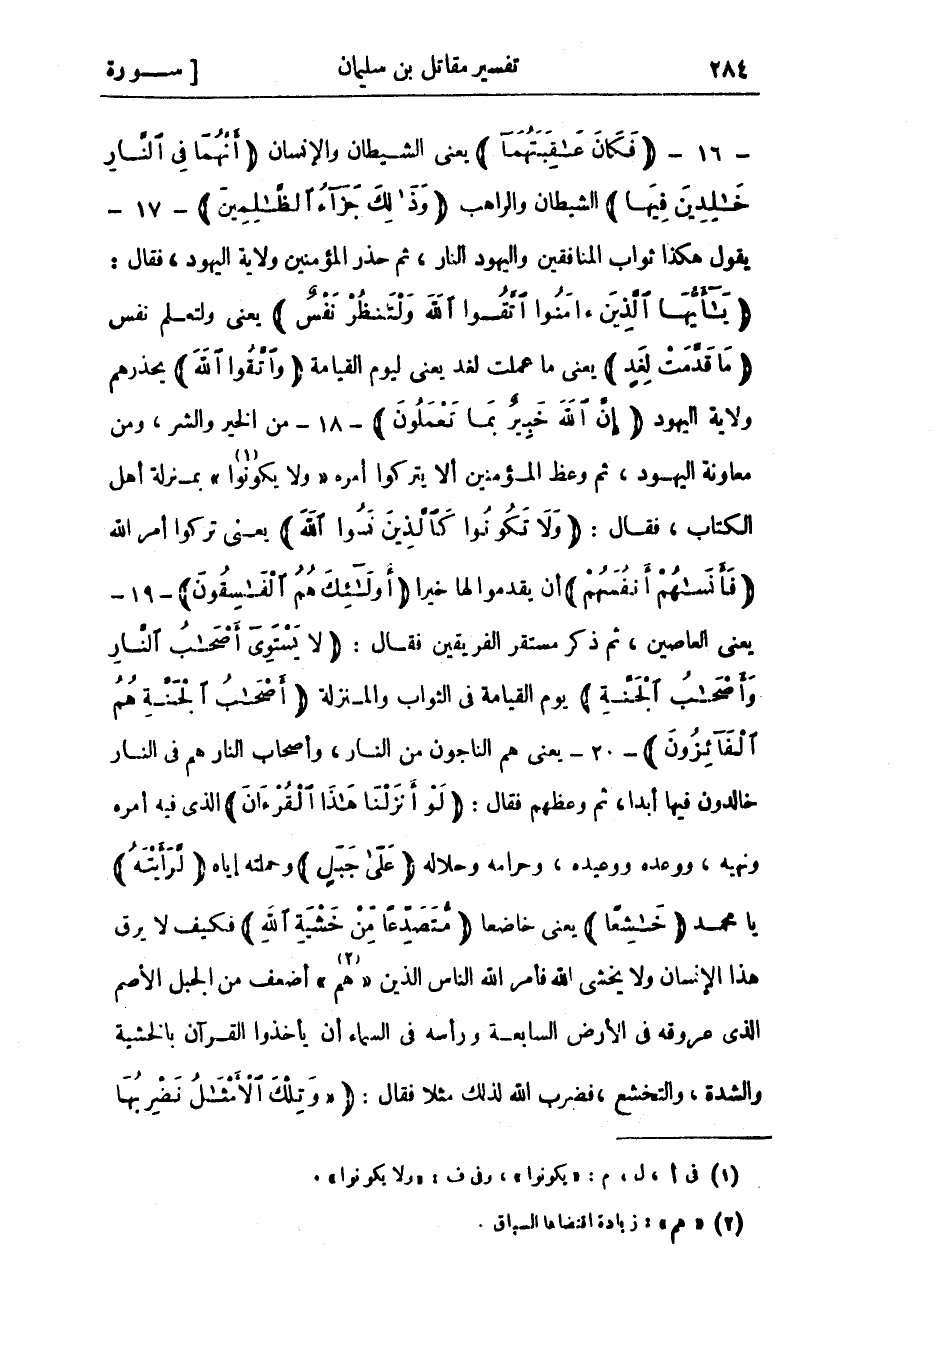 ٢٨٤ تفسير مقاتل بن سليمان [ سـورة
– ١٦ – ( فَكَانَ عَـٰقِبَتَهُمَآ ) يعنى الشيطان والإنسان ( أَنَّهُمَا فِى ٱلنَّارِ
خَـٰلِدَيْنِ فِيهَا ) الشيطان والراهب ( وَذَ ٰلِكَ جَزَآءُ ٱلظَّـٰلِمِينَ ) – ١٧ –
يقول هكذا ثواب المنافقين واليهود النار ، ثم حذر المؤمنين ولاية اليهود ، فقال :
( يَـٰٓأَيُّهَا ٱلَّذِينَ ءَامَنُوا ٱتَّقُوا ٱللَّهَ وَلْتَنظُرْ نَفْسٌ ) يعنى ولتعلم نفس
( مَا قَدَّمَتْ لِغَدٍ ) يعنى ما عملت لغد يعنى ليوم القيامة ( وَٱتَّقُوا ٱللَّهَ ) يحذرهم
ولاية اليهود ( إِنَّ ٱللَّهَ خَبِيرٌ بِمَا تَعْمَلُونَ ) – ١٨ – من الخير والشر ، ومن
معاونة اليهود ، ثم وعظ المؤمنين ألا يتركوا أمره « ولا يكونوا (١) » بمنزلة أهل
الكتاب ، فقال : ( وَلَا تَكُونُوا كَٱلَّذِينَ نَسُوا ٱللَّهَ ) يعنى تركوا أمر الله
( فَأَنسَـٰهُمْ أَنفُسَهُمْ ) أن يقدموا لها خيرا ( أُولَـٰٓئِكَ هُمُ ٱلْفَـٰسِقُونَ ) – ١٩ –
يعنى العاصين ، ثم ذكر مستقر الفريقين فقال : ( لا يَسْتَوِىٓ أَصْحَـٰبُ ٱلنَّارِ
وَأَصْحَـٰبُ ٱلْجَنَّةِ ) يوم القيامة فى الثواب والمنزلة ( أَصْحَـٰبُ ٱلْجَنَّةِ هُمُ
ٱلْفَآئِزُونَ ) – ٢٠ – يعنى هم الناجون من النار ، وأصحاب النار هم فى النار
خالدون فيها أبدا ، ثم وعظهم فقال : ( لَوْ أَنزَلْنَا هَـٰذَا ٱلْقُرْءَانَ ) الذى فيه أمره
ونهيه ، ووعده ووعيده ، وحرامه وحلاله ( عَلَىٰ جَبَلٍ ) وحملته إياه ( لَّرَأَيْتَهُ )
يا محمد ( خَـٰشِعًا ) يعنى خاضعا ( مُّتَصَدِّعًا مِّنْ خَشْيَةِ ٱللَّهِ ) فكيف لا يرق
هذا الإنسان ولا يخشى الله فأمر الله الناس الذين « هم (٢) » أضعف من الجبل الأصم
الذى عروقه فى الأرض السابعة ورأسه فى السماء أن يأخذوا القرآن بالخشية
والشدة ، والتخشع ، فضرب الله لذلك مثلا فقال : ( « وَتِلْكَ ٱلْأَمْثَـٰلُ نَضْرِبُهَا
(١) فى أ ، ل ، م : « يكونوا » ، وفى ف : « ولا يكونوا » .
(٢) « هم » : زيادة اقتضاها السياق .